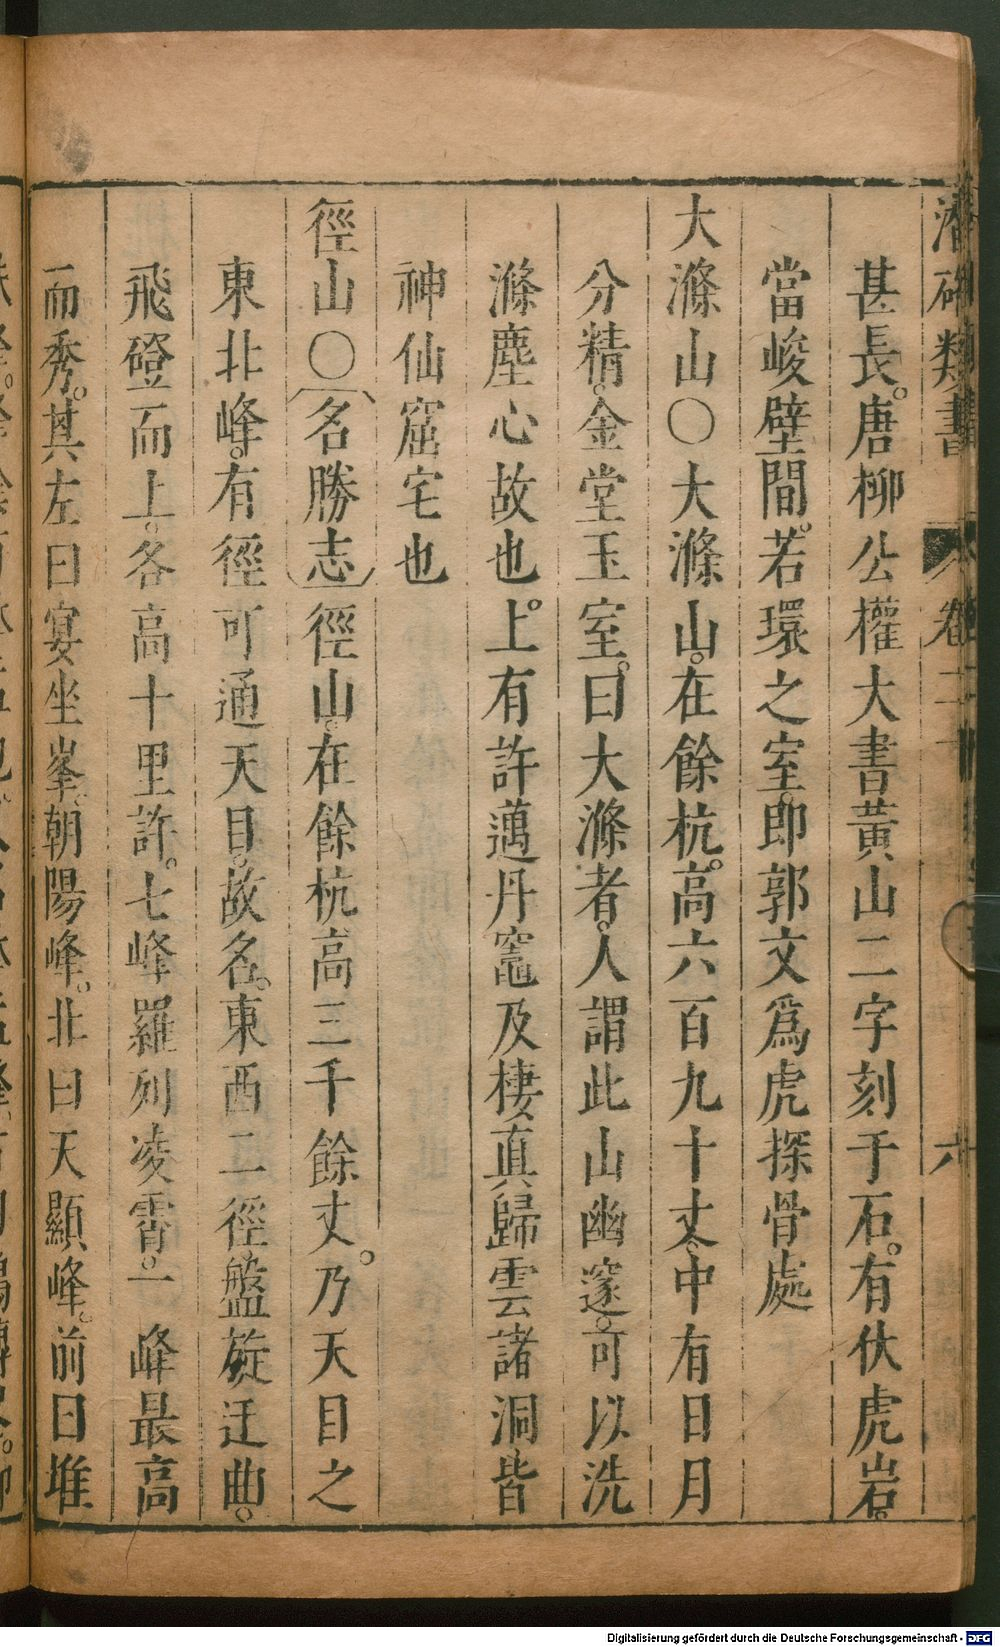 潛確類書
卷二十
六
甚長。唐柳公權大書黃山二字刻于石。有伏虎岩。
當峻壁間。若環之室。即郭文爲虎探骨處
大滌山〇大滌山。在餘杭。高六百九十丈。中有日月
分精。金堂玉室。曰大滌者。人謂此山幽邃。可以洗
滌塵心故也。上有許邁丹竈及棲真歸雲諸洞皆
神仙窟宅也
徑山〇〔名勝志〕徑山。在餘杭高三千餘丈。乃天目之
東北峰。有徑可通天目。故名。東西二徑盤旋迂曲。
飛磴而上。各高十里許。七峰羅列凌霄。一峰最高
而秀。其左曰宴坐峯、朝陽峰。北曰天顯峰。前曰堆
Digitalisierung gefördert durch die Deutsche Forschungsgemeinschaft - DFG